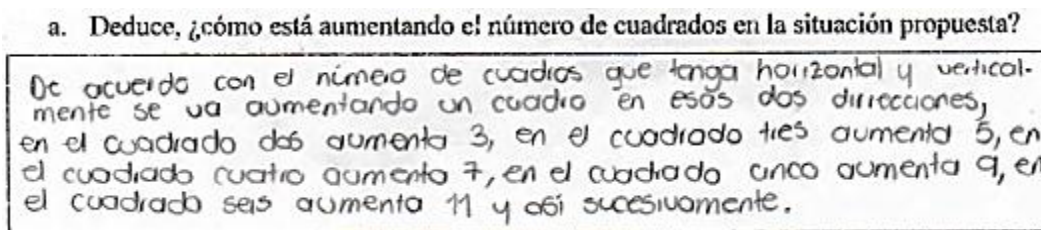 a. Deduce, ¿cómo está aumentando el número de cuadrados en la situación propuesta?
De acuerdo con el número de cuadros que tenga horizontal y vertical-
mente se va aumentando un cuadro en esas dos dirrecciones,
en el cuadrado dos aumenta 3, en el cuadrado tres aumenta 5, en
el cuadrado cuatro aumenta 7, en el cuadrado cinco aumenta 9, en
el cuadrado seis aumenta 11 y así sucesivamente.